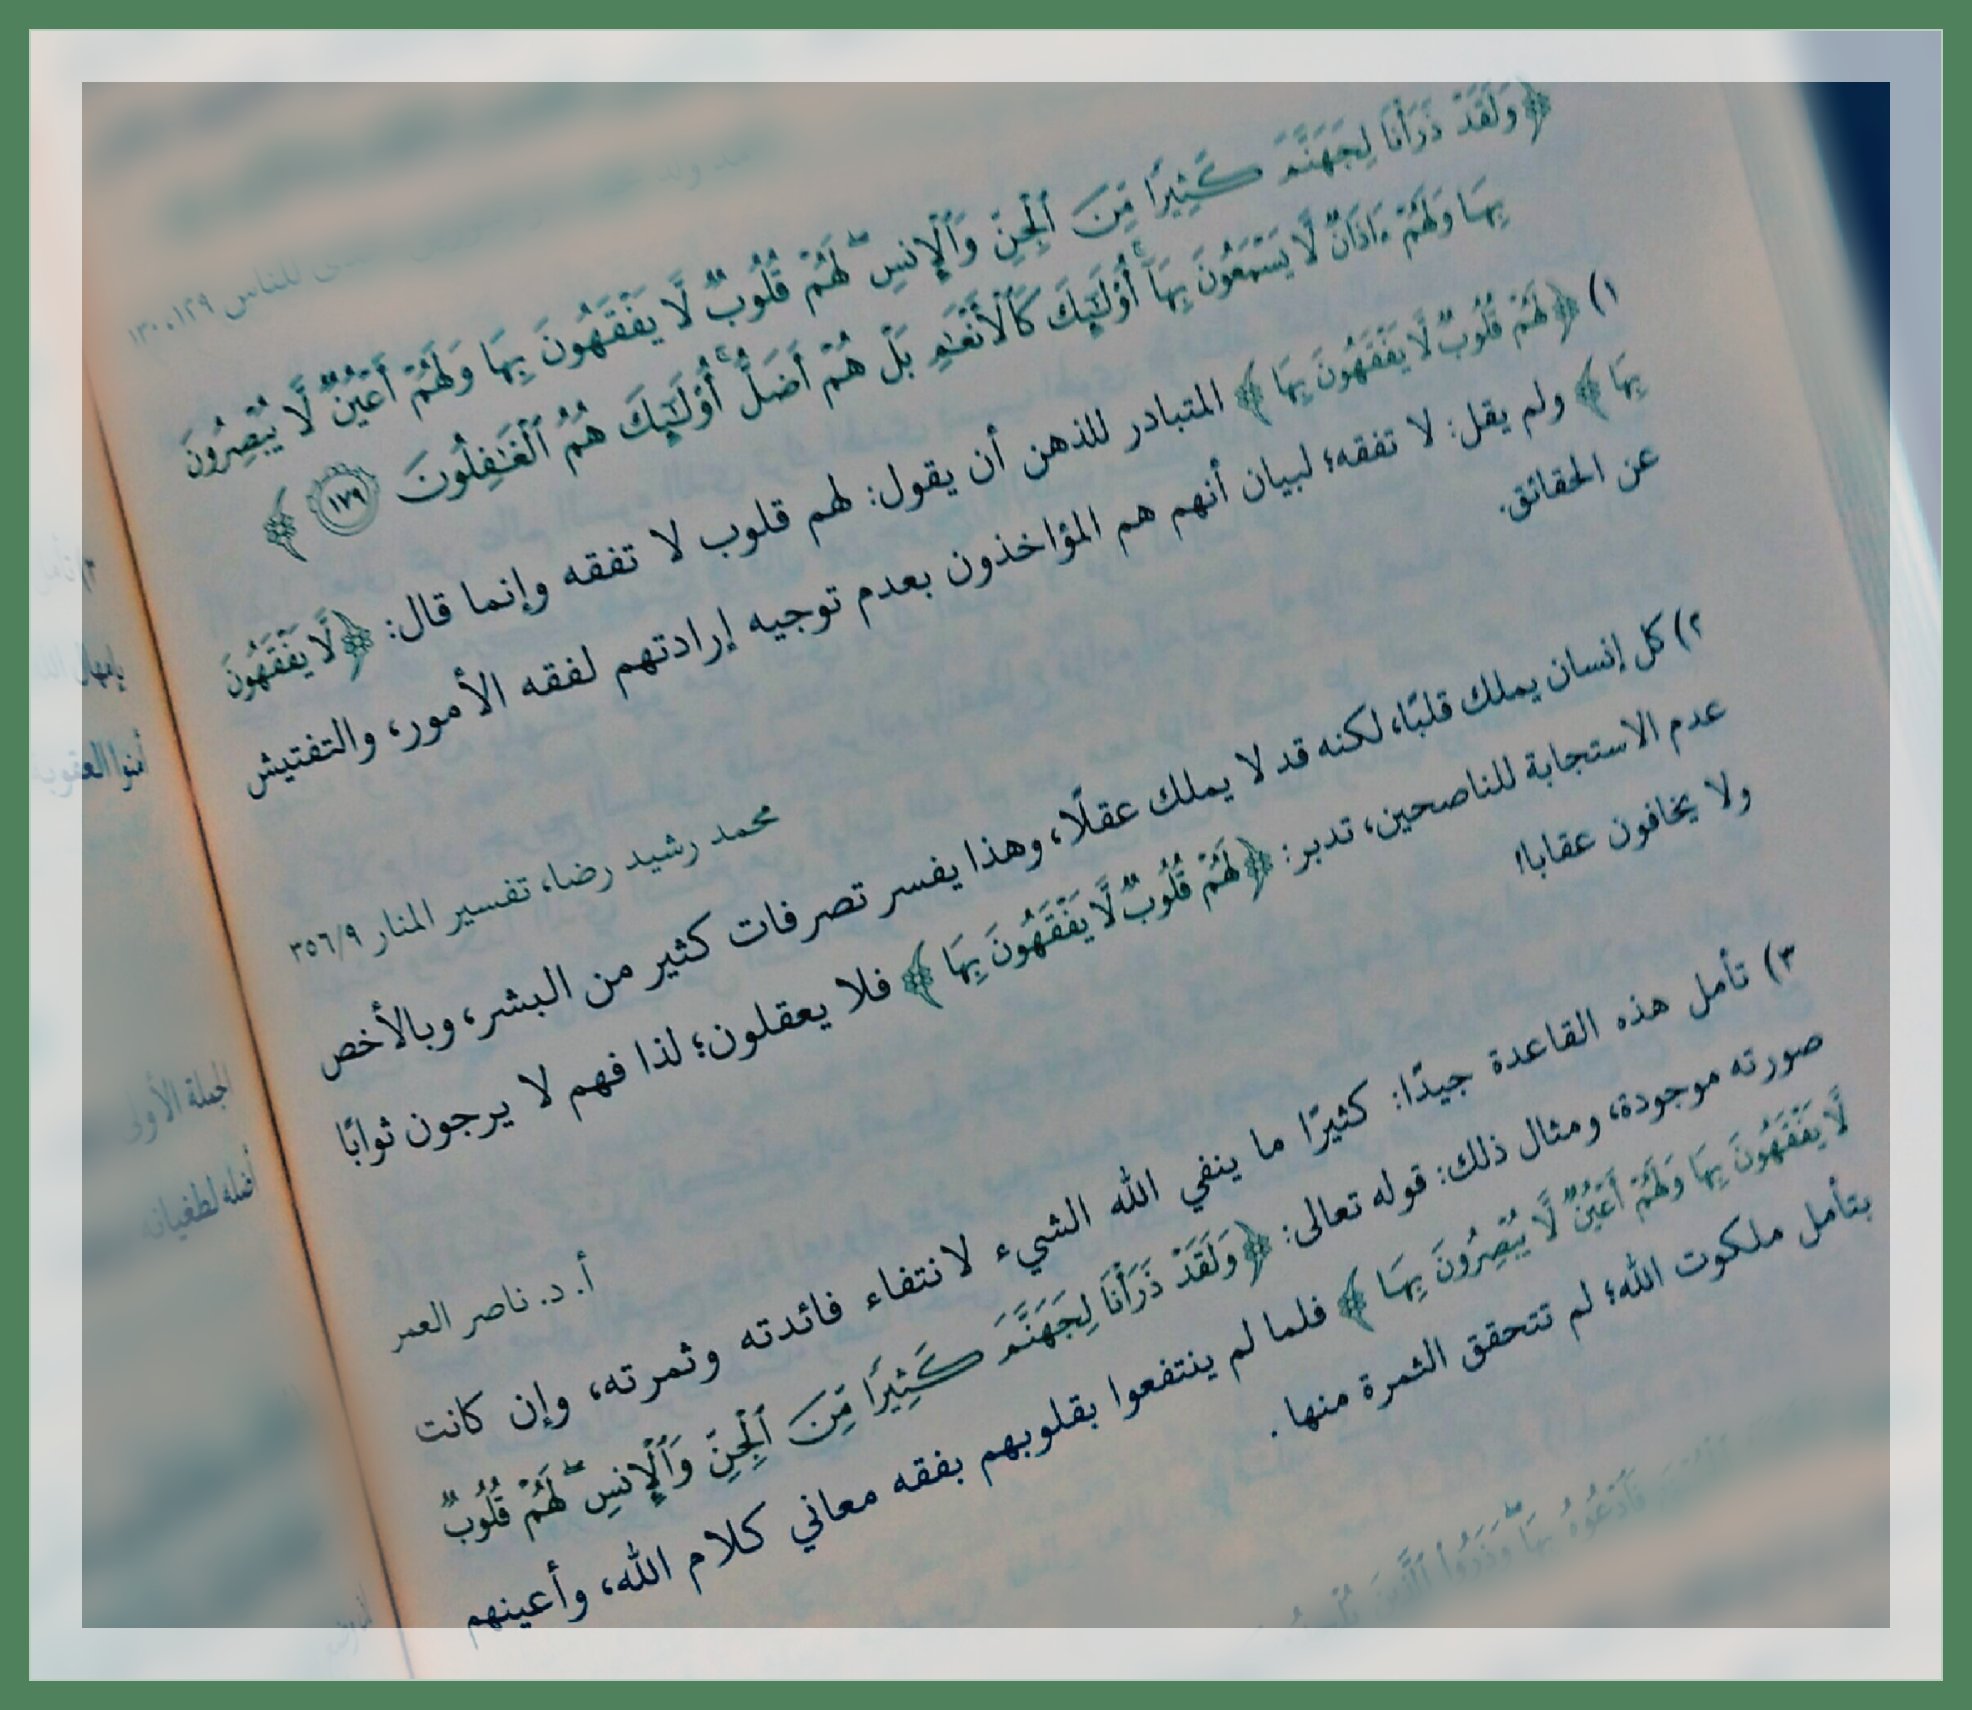 للناس ١٢٩، ١٣٠
﴿وَلَقَدْ ذَرَأْنَا لِجَهَنَّمَ كَثِيرًا مِّنَ ٱلْجِنِّ وَٱلْإِنسِ ۖ لَهُمْ قُلُوبٌ لَّا يَفْقَهُونَ بِهَا وَلَهُمْ أَعْيُنٌ لَّا يُبْصِرُونَ
بِهَا وَلَهُمْ ءَاذَانٌ لَّا يَسْمَعُونَ بِهَآ ۚ أُو۟لَـٰٓئِكَ كَٱلْأَنْعَـٰمِ بَلْ هُمْ أَضَلُّ ۚ أُو۟لَـٰٓئِكَ هُمُ ٱلْغَـٰفِلُونَ ١٧٩﴾
١) ﴿لَهُمْ قُلُوبٌ لَّا يَفْقَهُونَ بِهَا﴾ المتبادر للذهن أن يقول: لهم قلوب لا تفقه وإنما قال: ﴿لَّا يَفْقَهُونَ
بِهَا﴾ ولم يقل: لا تفقه؛ لبيان أنهم هم المؤاخذون بعدم توجيه إرادتهم لفقه الأمور، والتفتيش
عن الحقائق.
محمد رشيد رضا، تفسير المنار ٣٥٦/٩
٢) كل إنسان يملك قلبًا، لكنه قد لا يملك عقلًا، وهذا يفسر تصرفات كثير من البشر، وبالأخص
عدم الاستجابة للناصحين، تدبر: ﴿لَهُمْ قُلُوبٌ لَّا يَفْقَهُونَ بِهَا﴾ فلا يعقلون؛ لذا فهم لا يرجون ثوابًا
ولا يخافون عقابا!
أ. د. ناصر العمر
٣) تأمل هذه القاعدة جيدًا: كثيرًا ما ينفي الله الشيء لانتفاء فائدته وثمرته، وإن كانت
صورته موجودة، ومثال ذلك: قوله تعالى: ﴿وَلَقَدْ ذَرَأْنَا لِجَهَنَّمَ كَثِيرًا مِّنَ ٱلْجِنِّ وَٱلْإِنسِ ۖ لَهُمْ قُلُوبٌ
لَّا يَفْقَهُونَ بِهَا وَلَهُمْ أَعْيُنٌ لَّا يُبْصِرُونَ بِهَا﴾ فلما لم ينتفعوا بقلوبهم بفقه معاني كلام الله، وأعينهم
بتأمل ملكوت الله؛ لم تتحقق الثمرة منها.
فَٱدْعُوهُ بِهَا ۖ وَذَرُوا۟ ٱلَّذِينَ
أمنوا العقوبة
الجملة الأولى
لطغيانه